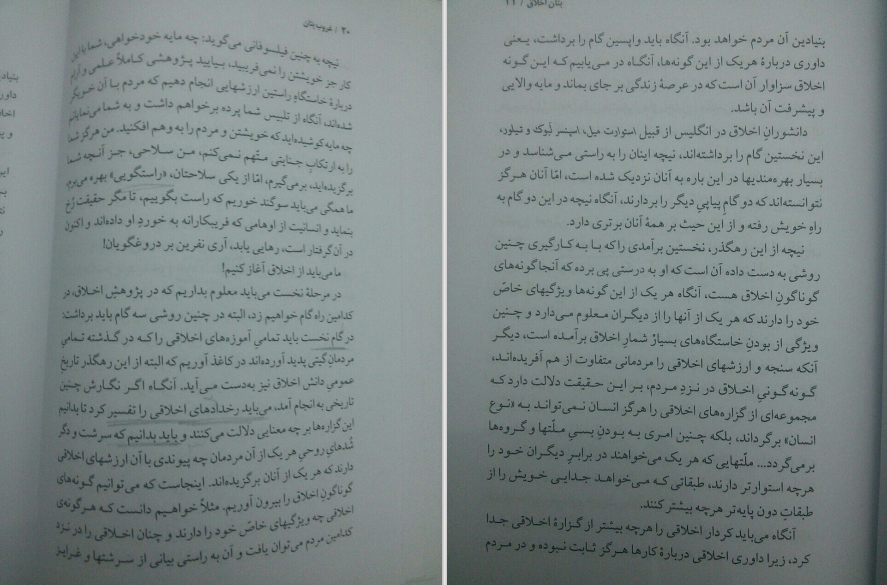 ۲۰ / غروب بتان
نیچه به چنین فیلسوفانی می‌گوید: چه مایه خودخواهی، شما به این
کار جز خویشتن را نمی‌فریبید، بیایید پژوهشی کاملاً علمی و آرام
دربارهٔ خاستگاهِ راستین ارزشهایی انجام دهیم که مردم با آن خویگر
شده‌اند، آنگاه از تلبیس شما پرده برخواهم داشت و به شما می‌نمایانم
چه مایه کوشیده‌اید که خویشتن و مردم را به وهم افکنید. من هرگز شما
را به ارتکابِ جنایتی متّهم نمی‌کنم، من سلاحی، جز آنچه شما
برگزیده‌اید، برمی‌گیرم، امّا از یکی سلاحتان، «راستگویی» بهره می‌برم.
ما همگی می‌باید سوگند خوریم که راست بگوییم، تا مگر حقیقت رُخ
بنماید و انسانیت از اوهامی که فریبکارانه به خوردِ او داده‌اند و اکنون
در آن گرفتار است، رهایی یابد، آری نفرین بر دروغگویان!
ما می‌باید از اخلاق آغاز کنیم!
در مرحلهٔ نخست می‌باید معلوم بداریم که در پژوهشِ اخلاق، در
کدامین راه گام خواهیم زد، البته در چنین روشی سه گام باید برداشت:
در گام نخست باید تمامیِ آموزه‌های اخلاقی را که در گذشته تمامیِ
مردمانِ گیتی پدید آورده‌اند در کاغذ آوریم که البته از این رهگذر تاریخ
عمومیِ دانش اخلاق نیز به‌دست می‌آید. آنگاه اگر نگارش چنین
تاریخی به انجام آمد، می‌باید رخدادهای اخلاقی را تفسیر کرد تا بدانیم
این گزاره‌ها بر چه معنایی دلالت می‌کنند و باید بدانیم که سرشت و دگر
شُدهای روحیِ هر یک از آن مردمان چه پیوندی با آن ارزشهای اخلاقی
دارند که هر یک از آنان برگزیده‌اند. اینجاست که می‌توانیم گونه‌های
گوناگونِ اخلاق را بیرون آوریم. مثلاً خواهیم دانست که هرگونه‌ی
اخلاقی چه ویژگیهای خاصّ خود را دارند و چنان اخلاقی را در نزد
کدامین مردم می‌توان یافت و آن به راستی بیانی از سرشتها و غرایز
بتان اخلاق / ۲۱
بنیادین آن مردم خواهد بود. آنگاه باید واپسین گام را برداشت، یعنی
داوری دربارهٔ هر یک از این گونه‌ها، آنگاه در می‌یابیم که این گونه
اخلاق سزاوار آن است که در عرصهٔ زندگی بر جای بماند و مایه والایی
و پیشرفت آن باشد.
دانشورانِ اخلاق در انگلیس از قبیل استوارت میل، اسپنسر لوک و تیلور،
این نخستین گام را برداشته‌اند، نیچه اینان را به راستی می‌شناسد و در
بسیار بهره‌مندیها در این باره به آنان نزدیک شده است، امّا آنان هرگز
نتوانسته‌اند که دو گامِ پیاپیِ دیگر را بردارند، آنگاه نیچه در این دو گام به
راهِ خویش رفته و از این حیث بر همهٔ آنان برتری دارد.
نیچه از این رهگذر، نخستین برآمدی را که با به کارگیری چنین
روشی به دست داده آن است که او به درستی پی برده که آنجا گونه‌های
گوناگونِ اخلاق هست، آنگاه هر یک از این گونه‌ها ویژگیهای خاصّ
خود را دارند که هر یک از آنها را از دیگران معلوم می‌دارد و چنین
ویژگی از بودنِ خاستگاه‌های بسیار شمارِ اخلاق برآمده است، دیگر
آنکه سنجه و ارزشهای اخلاقی را مردمانی متفاوت از هم آفریده‌اند،
گونه‌گونیِ اخلاق در نزدِ مردم، بر این حقیقت دلالت دارد که
مجموعه‌ای از گزاره‌های اخلاقی را هرگز انسان نمی‌تواند به «نوع
انسان» برگرداند، بلکه چنین امری به بودنِ بسی ملّتها و گروه‌ها
برمی‌گردد... ملّتهایی که هر یک می‌خواهند در برابرِ دیگران خود را
هرچه استوارتر دارند، طبقاتی که می‌خواهد جدایی خویش را از
طبقاتِ دون پایه‌تر هرچه بیشتر کنند.
آنگاه می‌باید کردار اخلاقی را هرچه بیشتر از گزارهٔ اخلاقی جدا
کرد، زیرا داوری اخلاقی دربارهٔ کارها هرگز ثابت نبوده و در مردم